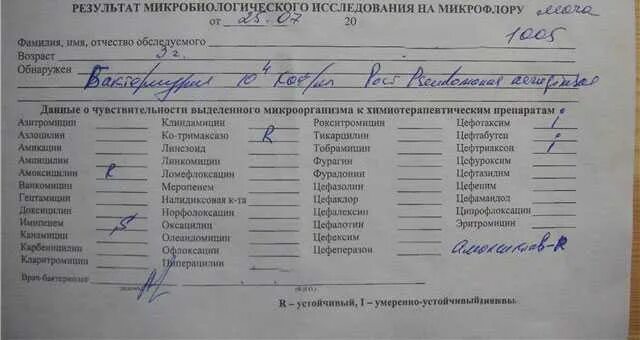 РЕЗУЛЬТАТ МИКРОБИОЛОГИЧЕСКОГО ИССЛЕДОВАНИЯ НА МИКРОФЛОРУ моча
от 25.07 20
1005
Фамилия, имя, отчество обследуемого
Возраст 3 г.
Обнаружен Бактериурия 10⁴ Кое/мл Рост Pseudomonas aeruginosa
Данные о чувствительности выделенного микроорганизма к химиотерапевтическим препаратам
Азитромицин Клиндамицин Рокситромицин Цефотаксим i
Азлоцилин Ко-тримаксазо R Тикарцилин Цефтабутен i
Амикацин Линезоид Тобрамицин Цефтриаксон i
Ампицилин Линкомицин Фурагин Цефуроксим
Амоксицилин R Ломефлоксацин Фурадонин Цефтазидим
Ванкомицин Меропенем Цефазолин Цефепим
Гентамицин Налидиксовая к-та Цефаклор Цефамандол
Доксицилин Норфлоксацин Цефалексин Ципрофлоксацин
Имипенем S Оксацилин Цефалотин Эритромицин
Канамицин Олеандомицин Цефексим
Карбеницилин Офлоксацин Цефеперазон Амоксиклав-R
Кларитромицин Пиперацилин
Врач-бактериолог
(Ф.И.О.)
R – устойчивый, I – умеренно-устойчивый